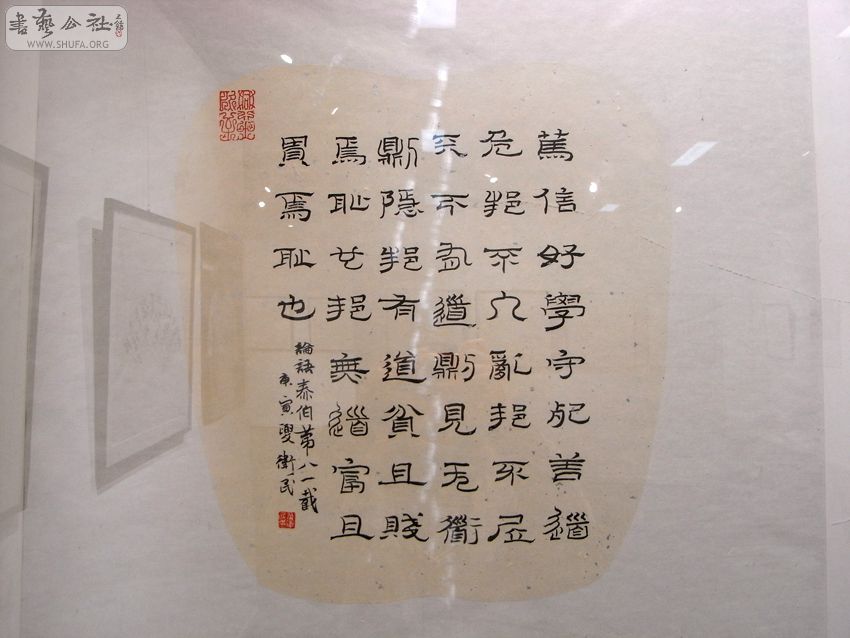 書藝公社
WWW.SHUFA.ORG
篤信好學守死善道
危邦不入亂邦不居
天下有道則見无衟
則隱邦有道貧且賤
焉耻也邦無道富且
貴焉耻也
論語泰伯第八一截
庚寅夏衛民